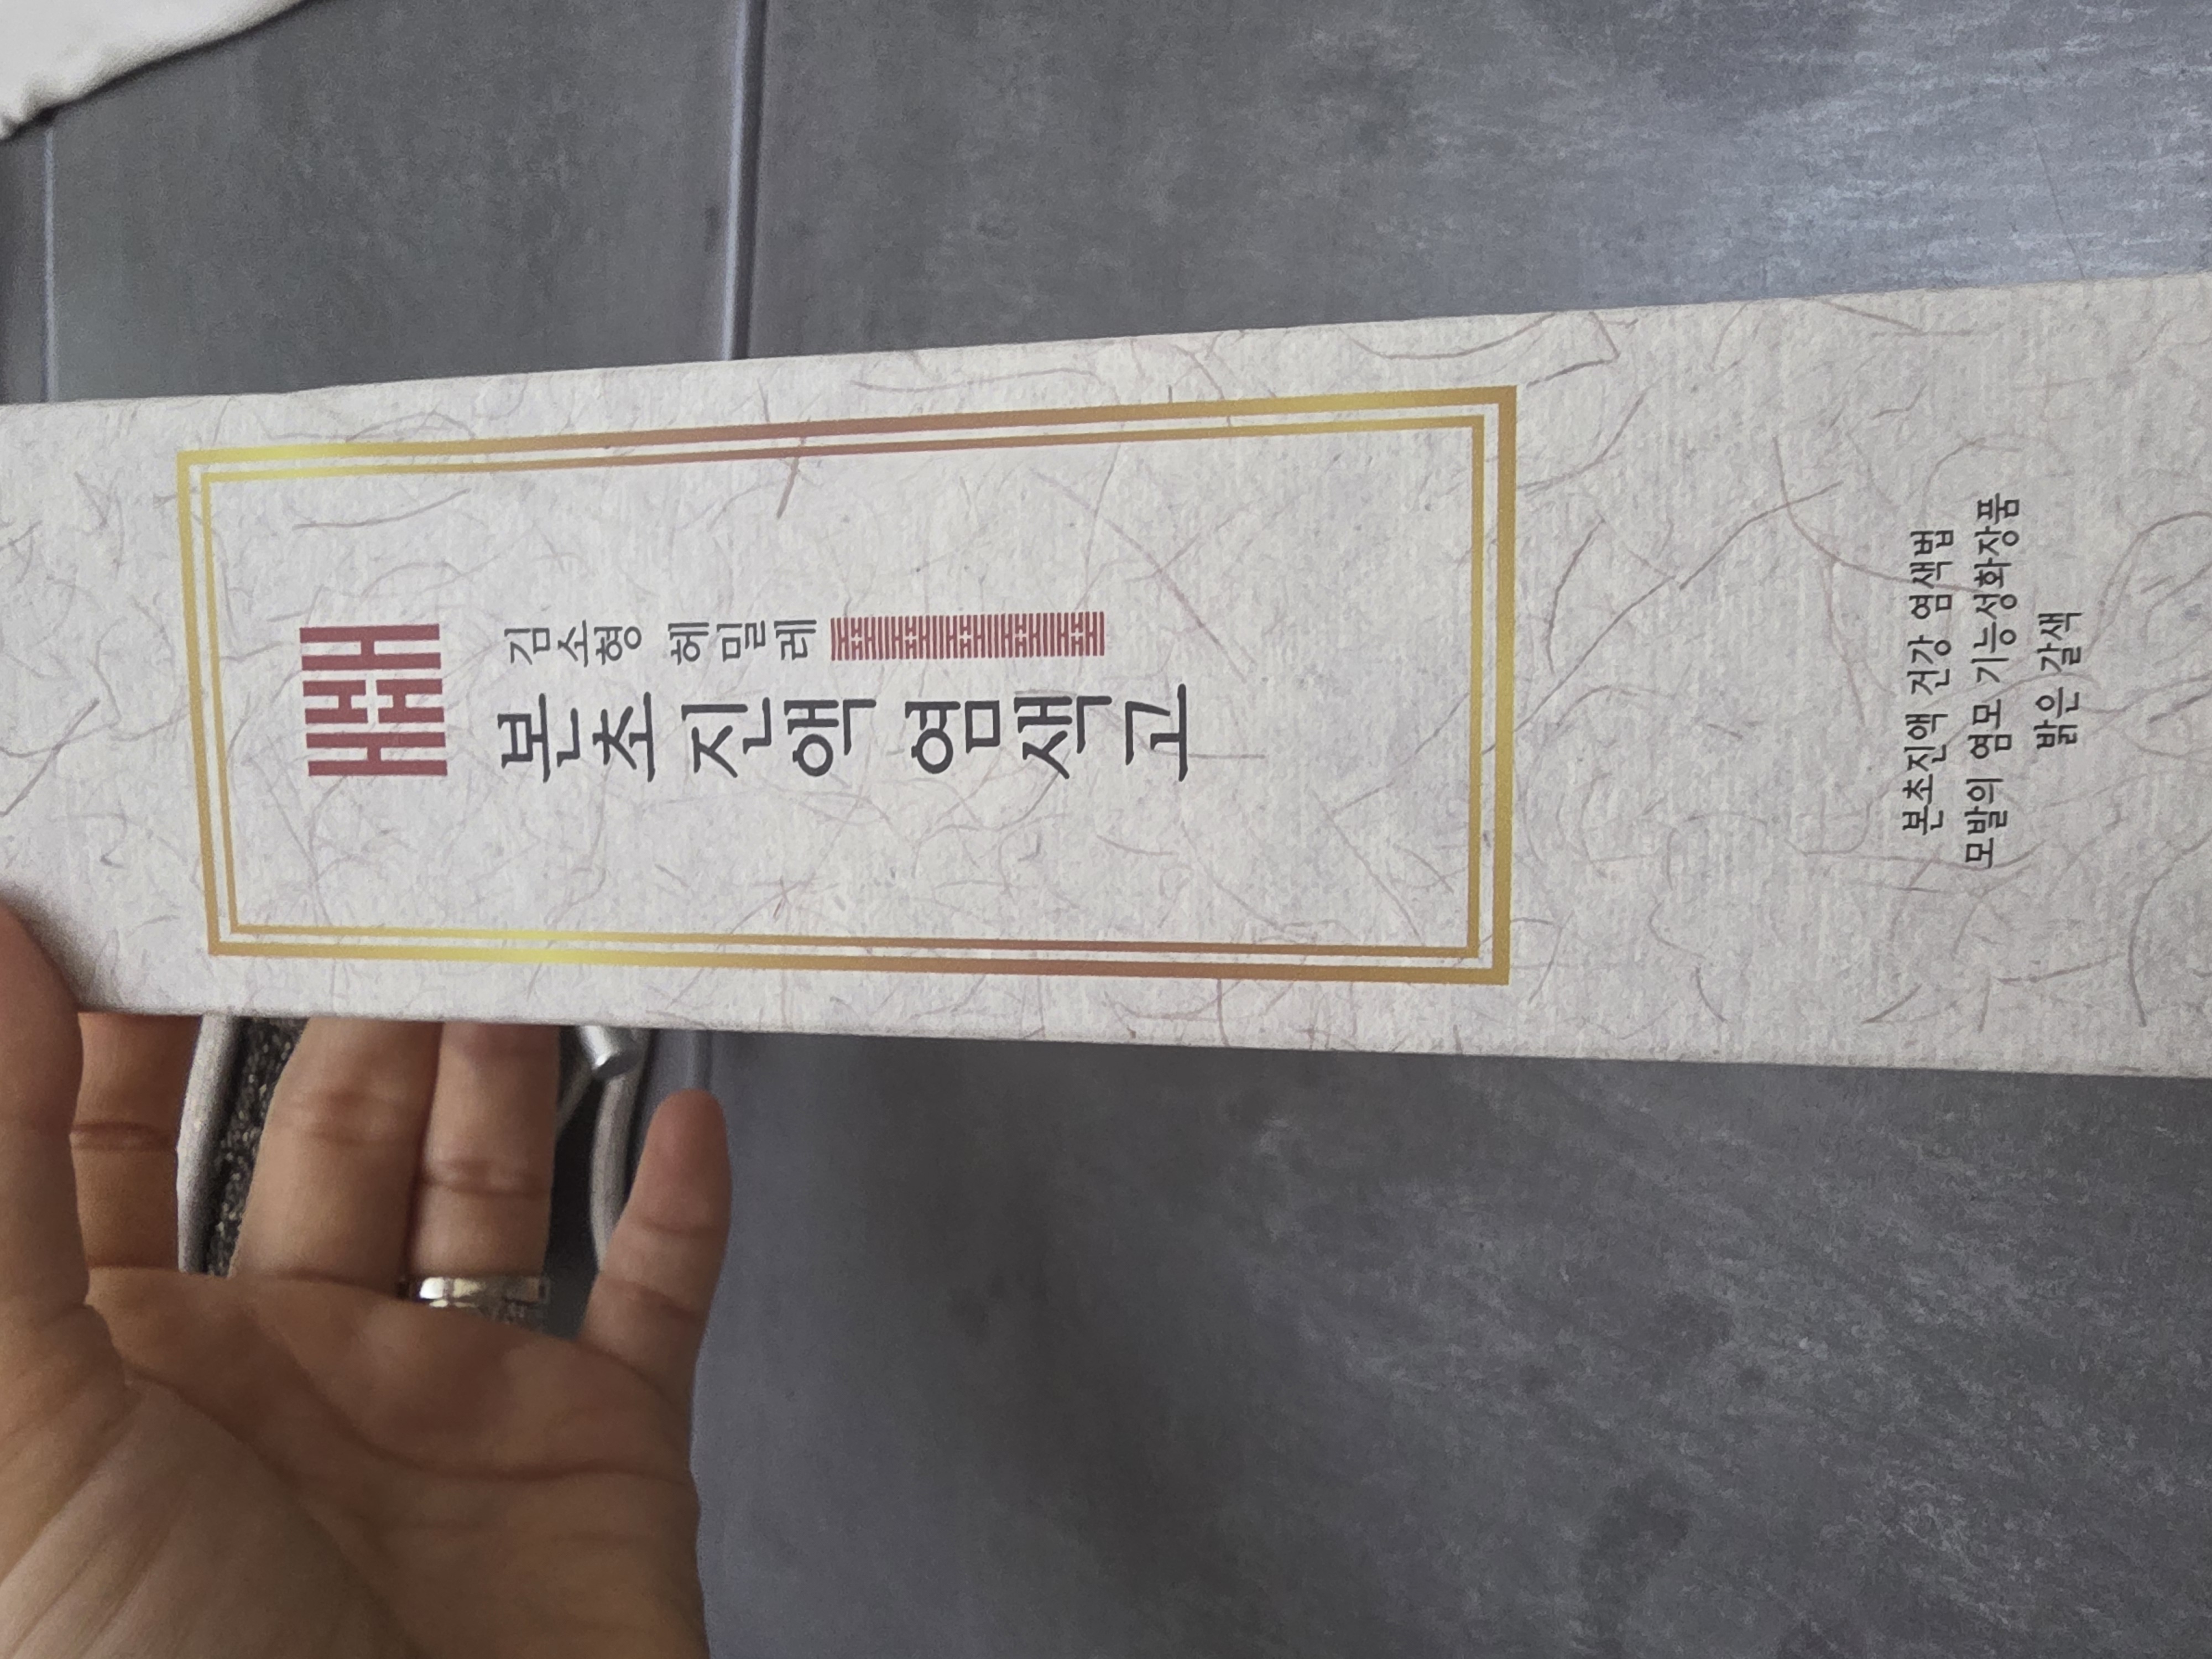 김소형 헤밀레
본초 진액 염색고
본초진액 건강 염색법
모발의 염모 기능성화장품
밝은 갈색